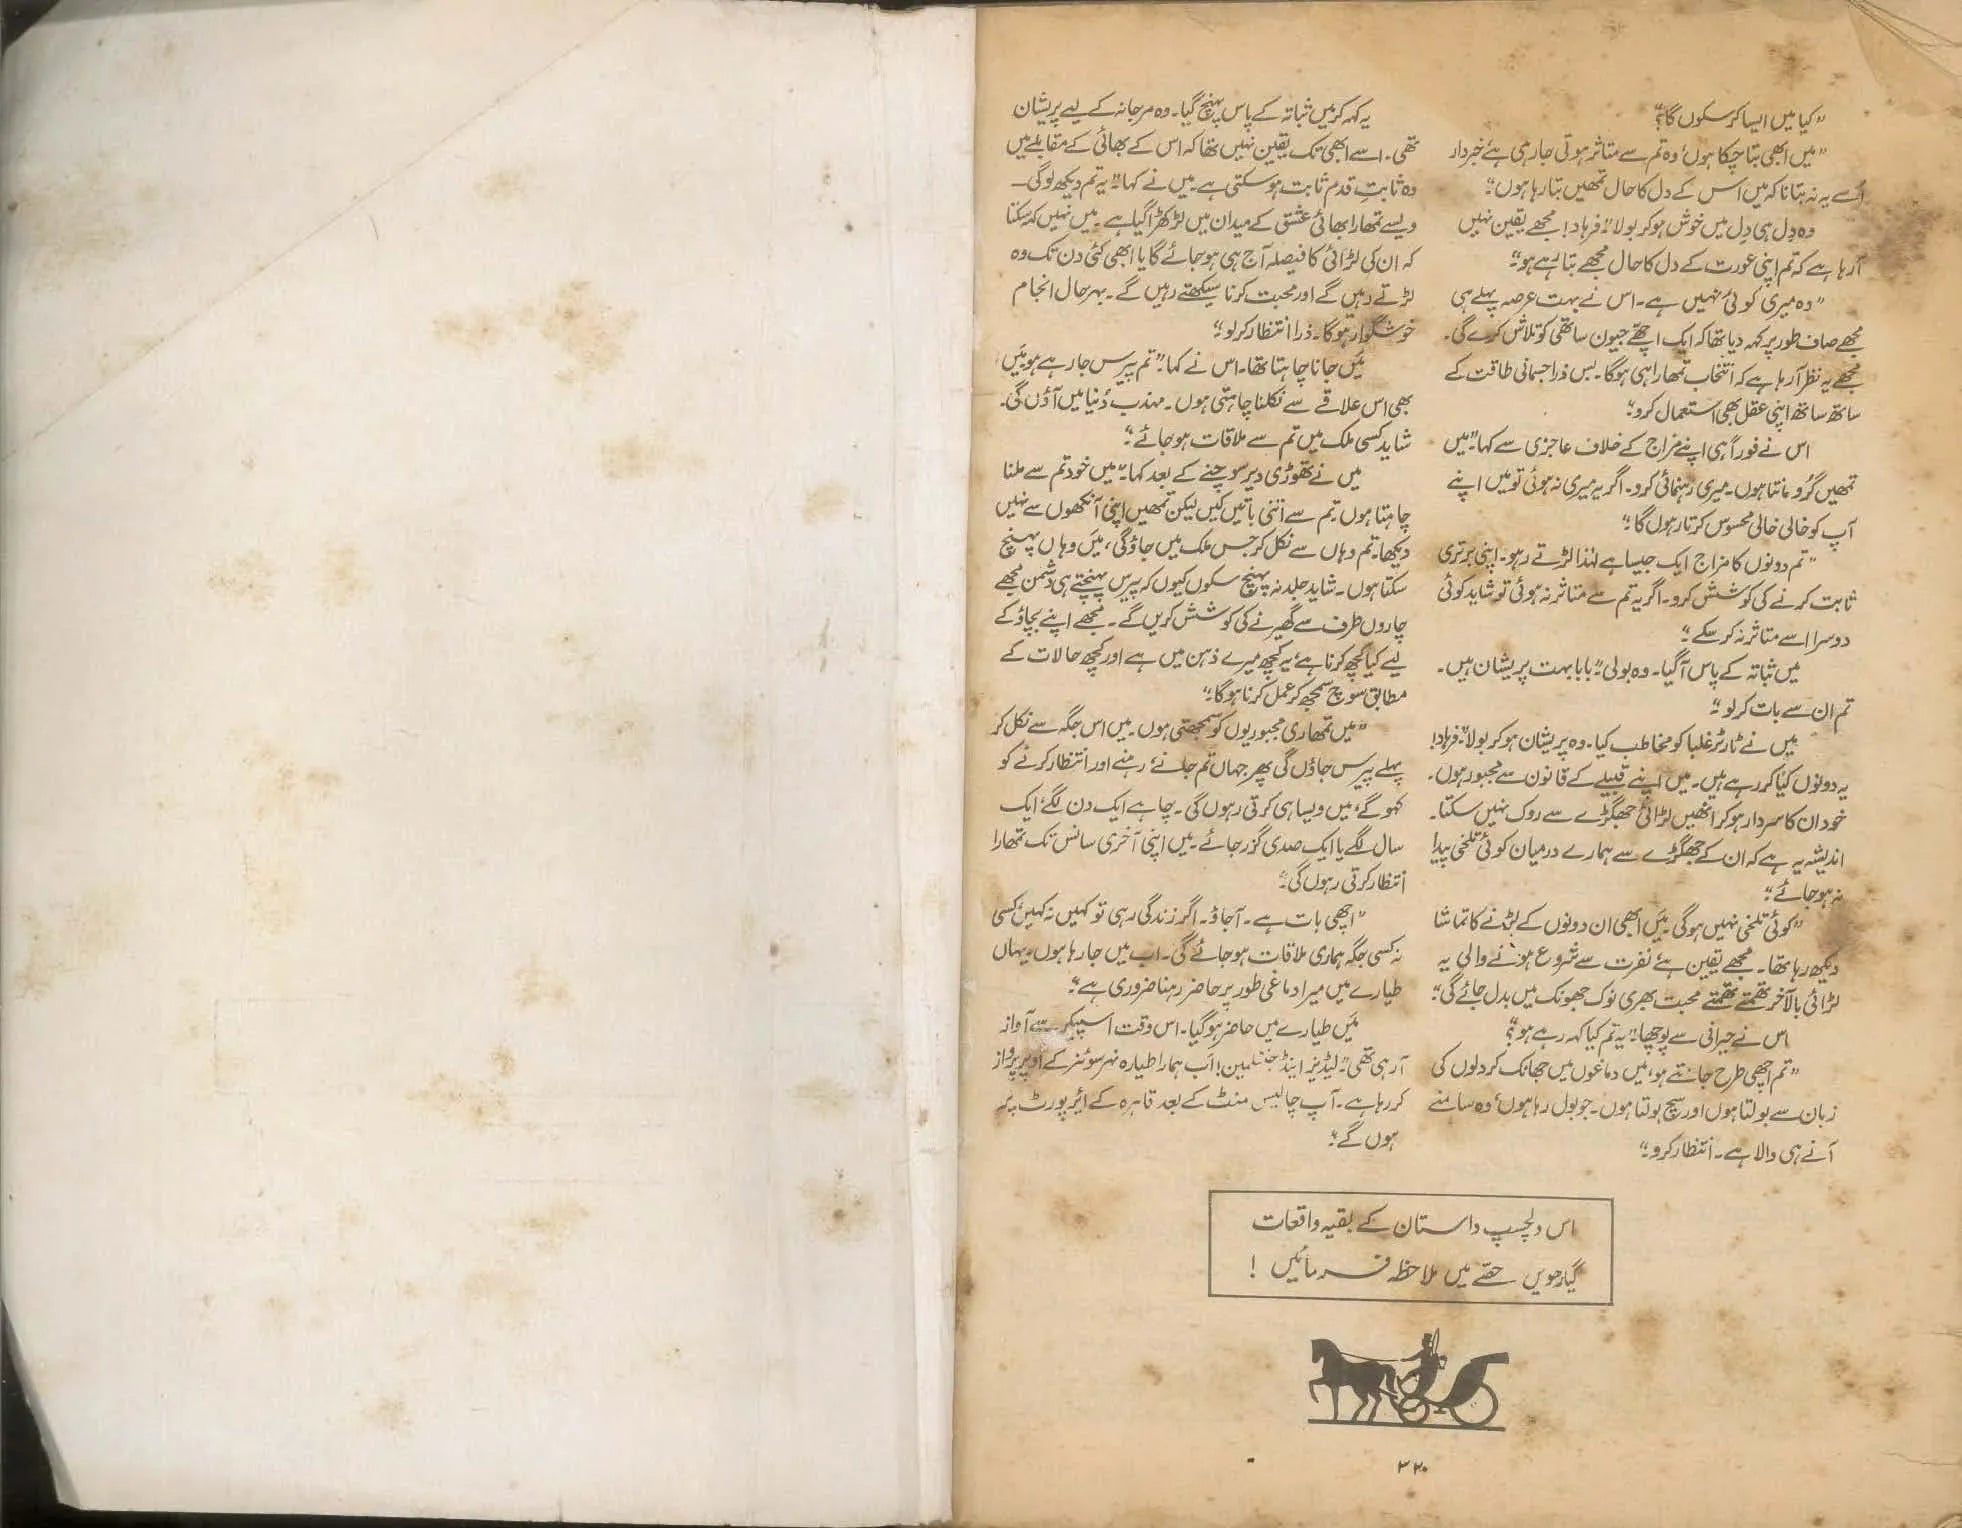 ”کیا میں ایسا کر سکوں گا؟“
”میں ابھی بتا چکا ہوں‘ وہ تم سے متاثر ہوتی جا رہی ہے‘ خبردار
اُسے یہ نہ بتانا کہ میں اس کے دل کا حال تمھیں بتا رہا ہوں۔“
وہ دِل ہی دِل میں خوش ہو کر بولا۔ ”فرہاد! مجھے یقین نہیں
آ رہا ہے کہ تم اپنی عورت کے دل کا حال مجھے بتا رہے ہو۔“
”وہ میری کوئی نہیں ہے۔ اس نے بہت عرصہ پہلے ہی
مجھے صاف طور پر کہہ دیا تھا کہ ایک اچھے جیون ساتھی کو تلاش کرے گی۔
مجھے یہ نظر آ رہا ہے کہ انتخاب تمھارا ہی ہوگا۔ بس ذرا جسمانی طاقت کے
ساتھ ساتھ اپنی عقل بھی استعمال کرو۔“
اس نے فوراً ہی اپنے مزاج کے خلاف عاجزی سے کہا۔ ”میں
تمھیں گُرو مانتا ہوں۔ میری رہنمائی کرو۔ اگر یہ میری نہ ہوئی تو میں اپنے
آپ کو خالی خالی محسوس کرتا رہوں گا۔“
”تم دونوں کا مزاج ایک جیسا ہے لہٰذا لڑتے رہو۔ اپنی برتری
ثابت کرنے کی کوشش کرو۔ اگر یہ تم سے متاثر نہ ہوئی تو شاید کوئی
دوسرا اسے متاثر نہ کر سکے۔“
میں ثباتہ کے پاس آ گیا۔ وہ بولی۔ ”بابا بہت پریشان ہیں۔
تم ان سے بات کر لو۔“
میں نے ٹارٹر غلبا کو مخاطب کیا۔ وہ پریشان ہو کر بولا۔ ”فرہاد!
یہ دونوں کیا کر رہے ہیں۔ میں اپنے قبیلے کے قانون سے مجبور ہوں۔
خود ان کا سردار ہو کر انھیں لڑائی جھگڑے سے روک نہیں سکتا۔
اندیشہ یہ ہے کہ ان کے جھگڑے سے ہمارے درمیان کوئی تلخی پیدا
نہ ہو جائے۔“
”کوئی تلخی نہیں ہوگی۔ میَں ابھی ان دونوں کے لڑنے کا تماشا
دیکھ رہا تھا۔ مجھے یقین ہے‘ نفرت سے شروع ہونے والی یہ
لڑائی بالآخر تھمتے تھمتے محبت بھری نوک جھونک میں بدل جائے گی۔“
اس نے حیرانی سے پوچھا۔ ”یہ تم کیا کہہ رہے ہو؟“
”تم اچھی طرح جانتے ہو‘ میں دماغوں میں جھانک کر دلوں کی
زبان سے بولتا ہوں اور سچ بولتا ہوں۔ جو بول رہا ہوں‘ وہ سامنے
آنے ہی والا ہے۔ انتظار کرو۔“
یہ کہہ کر میں ثباتہ کے پاس پہنچ گیا۔ وہ مرجانہ کے لیے پریشان
تھی۔ اسے ابھی تک یقین نہیں تھا کہ اس کے بھائی کے مقابلے میں
وہ ثابت قدم ثابت ہو سکتی ہے۔ میں نے کہا۔ ”یہ تم دیکھ لو گی۔
ویسے تمھارا بھائی عشق کے میدان میں لڑکھڑا گیا ہے۔ میں نہیں کہہ سکتا
کہ ان کی لڑائی کا فیصلہ آج ہی ہو جائے گا یا ابھی کئی دن تک وہ
لڑتے رہیں گے اور محبت کرنا سیکھتے رہیں گے۔ بہر حال انجام
خوشگوار ہوگا۔ ذرا انتظار کر لو۔“
میَں جانا چاہتا تھا۔ اس نے کہا۔ ”تم پیرس جا رہے ہو‘ میَں
بھی اس علاقے سے نکلنا چاہتی ہوں۔ مہذب دُنیا میں آؤں گی۔
شاید کسی ملک میں تم سے ملاقات ہو جائے۔“
میں نے تھوڑی دیر سوچنے کے بعد کہا۔ ”میں خود تم سے ملنا
چاہتا ہوں۔ تم سے اتنی باتیں کیں لیکن تمھیں اپنی آنکھوں سے نہیں
دیکھا۔ تم وہاں سے نکل کر جس ملک میں جاؤ گی، میَں وہاں پہنچ
سکتا ہوں۔ شاید جلد نہ پہنچ سکوں کیوں کہ پیرس پہنچتے ہی دُشمن مجھے
چاروں طرف سے گھیرنے کی کوشش کریں گے۔ مجھے اپنے بچاؤ کے
لیے کیا کچھ کرنا ہے‘ یہ کچھ میرے ذہن میں ہے اور کچھ حالات کے
مطابق سوچ سمجھ کر عمل کرنا ہوگا۔“
”میں تمھاری مجبوریوں کو سمجھتی ہوں۔ میں اس جگہ سے نکل کر
پہلے پیرس جاؤں گی پھر جہاں تم جانے‘ رہنے اور انتظار کرنے کو
کہو گے‘ میں ویسا ہی کرتی رہوں گی۔ چاہے ایک دن لگے‘ ایک
سال لگے یا ایک صدی گزر جائے۔ میں اپنی آخری سانس تک تمھارا
انتظار کرتی رہوں گی۔“
”اچھی بات ہے۔ آ جاؤ۔ اگر زندگی رہی تو کہیں نہ کہیں‘ کسی
نہ کسی جگہ ہماری ملاقات ہو جائے گی۔ اب میں جا رہا ہوں۔ یہاں
طیارے میں میرا دماغی طور پر حاضر رہنا ضروری ہے۔“
میَں طیارے میں حاضر ہو گیا۔ اس وقت اسپیکر سے آواز
آ رہی تھی۔ ”لیڈیز اینڈ جنٹلمین! اَب ہمارا طیارہ نہر سوئز کے اوپر پرواز
کر رہا ہے۔ آپ چالیس منٹ کے بعد قاہرہ کے ائر پورٹ پر
ہوں گے۔“
اس دلچسپ داستان کے بقیہ واقعات
گیارھویں حصّے میں ملاحظہ فرمائیں !
۳۲۰